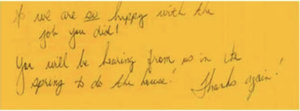 we are so happy with the
job you did!
You will be hearing from us in the
spring to do the house!
Thanks again!